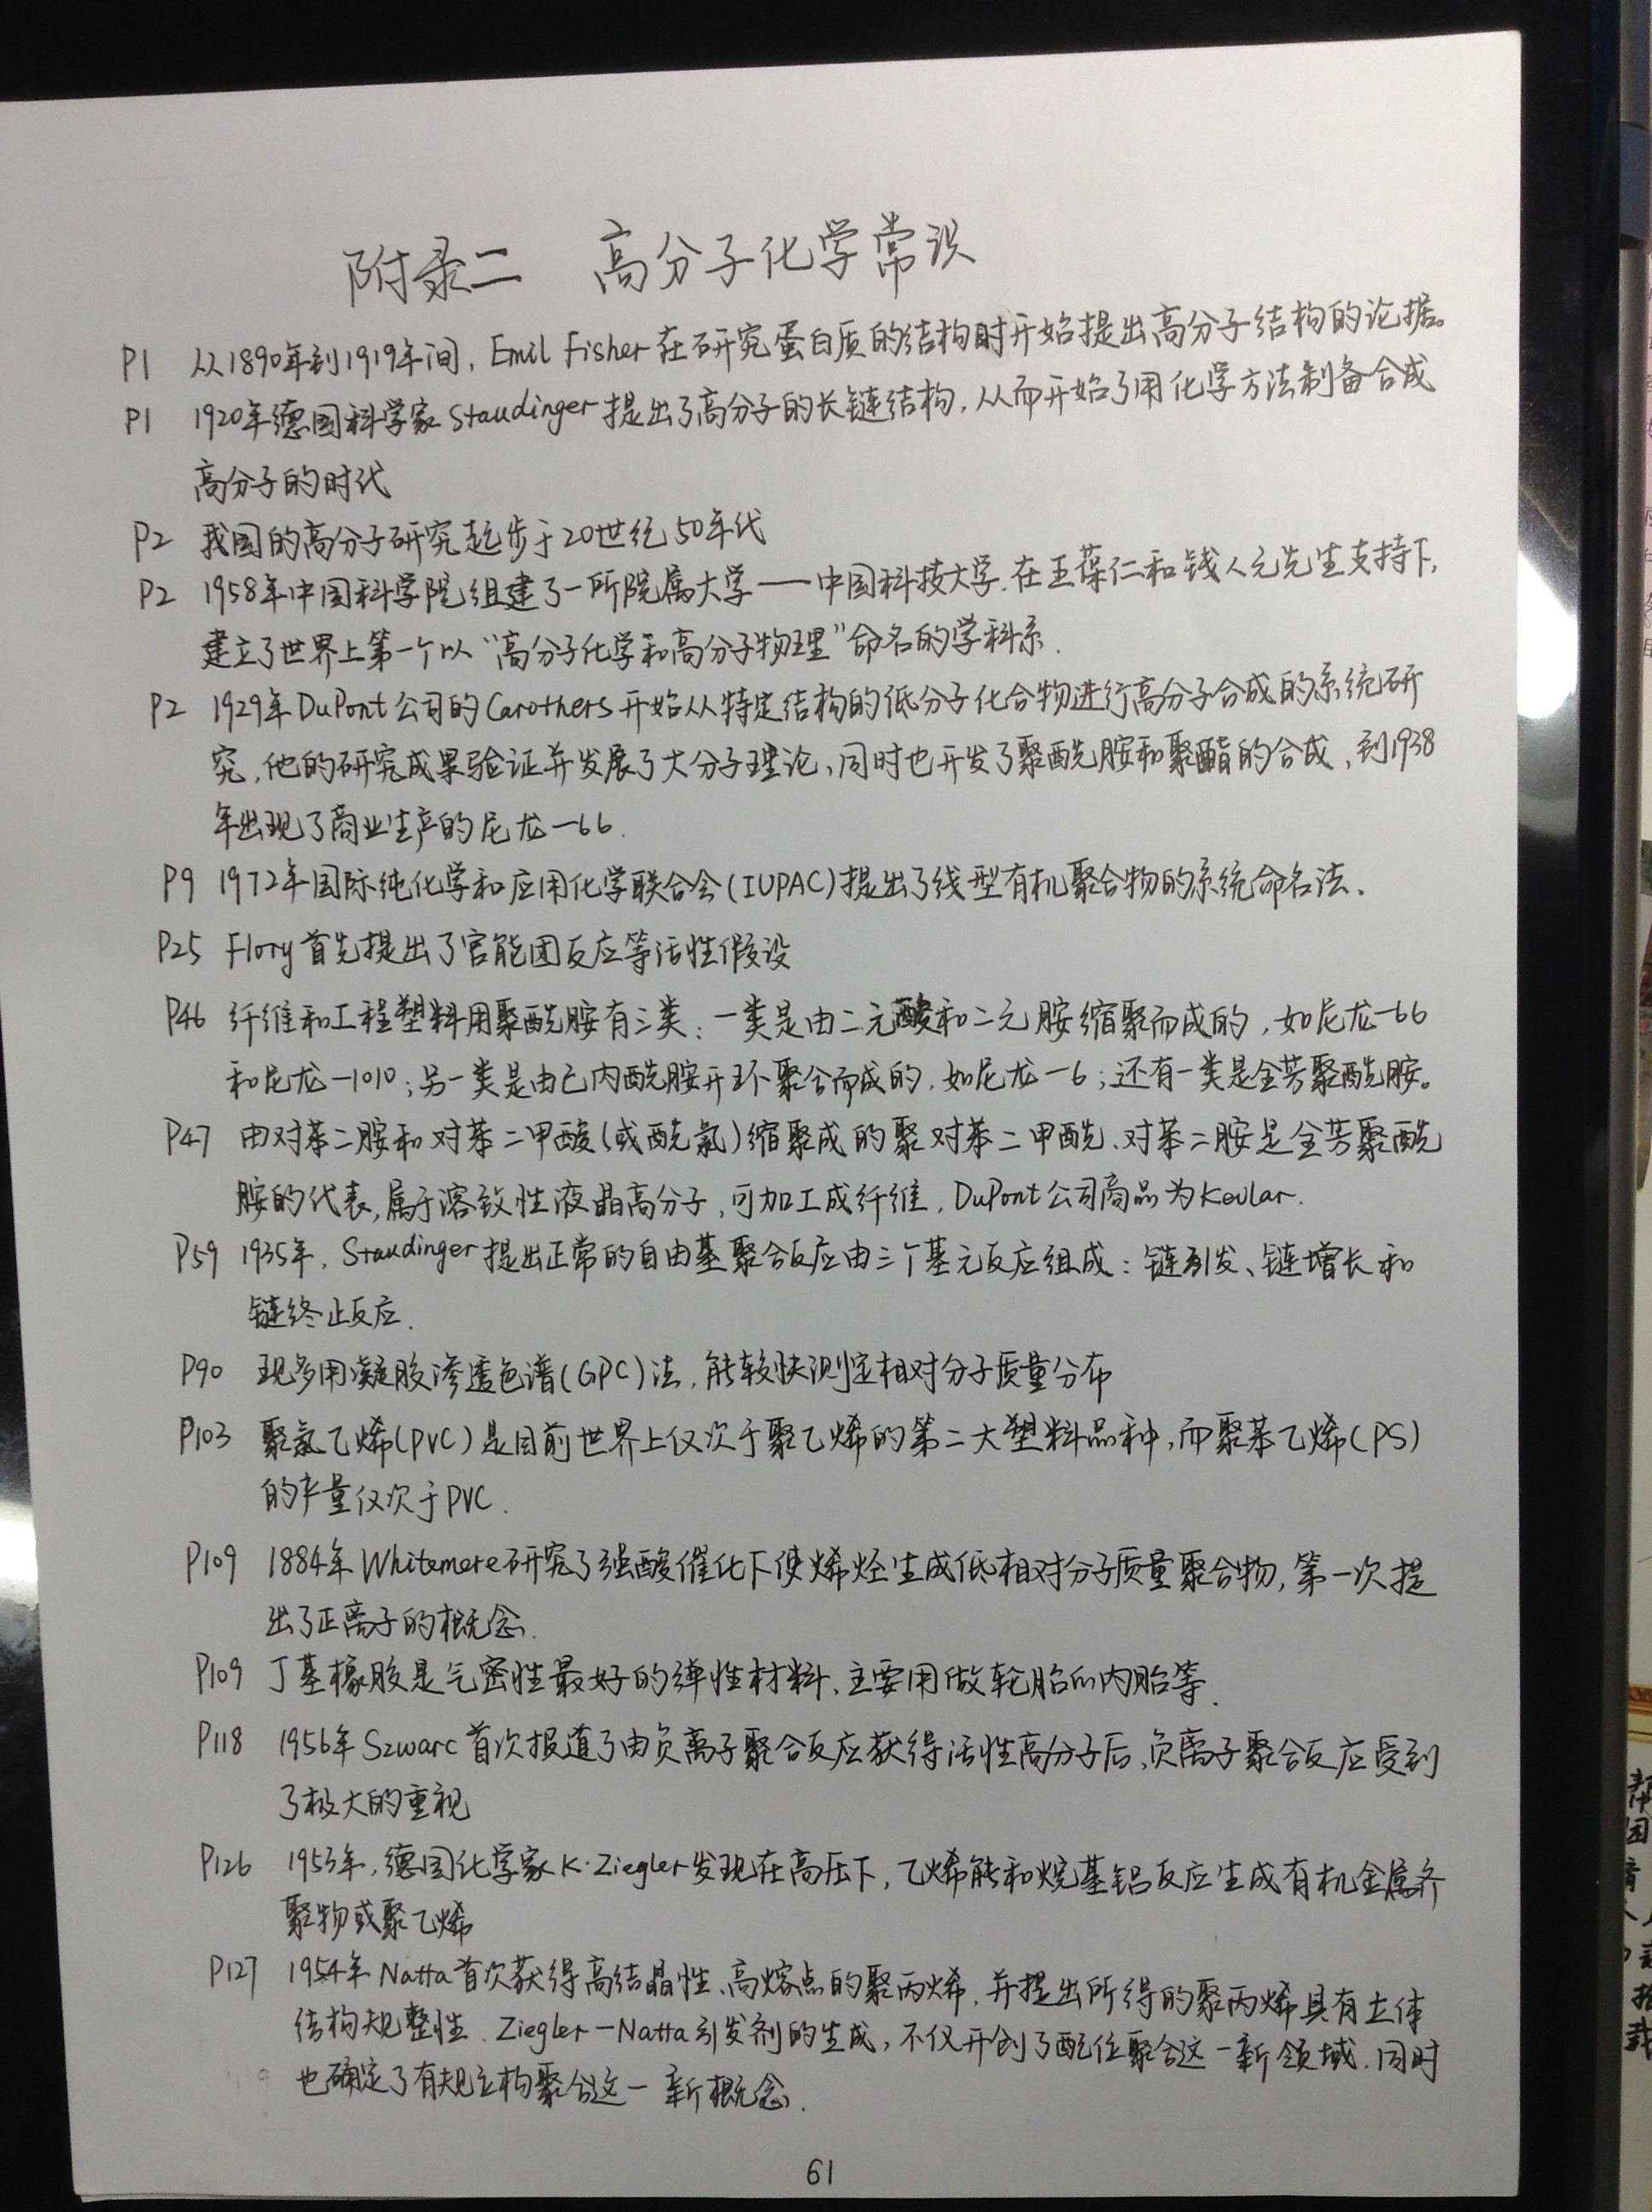 附录二 高分子化学常识
P1 从1890年到1919年间,Emil Fisher在研究蛋白质的结构时开始提出高分子结构的论据。
P1 1920年德国科学家Staudinger提出了高分子的长链结构,从而开始了用化学方法制备合成
高分子的时代
P2 我国的高分子研究起步于20世纪50年代
P2 1958年中国科学院组建了一所院属大学——中国科技大学.在王葆仁和钱人元先生支持下,
建立了世界上第一个以“高分子化学和高分子物理”命名的学科系.
P2 1929年DuPont公司的Carothers开始从特定结构的低分子化合物进行高分子合成的系统研
究,他的研究成果验证并发展了大分子理论、同时也开发了聚酰胺和聚酯的合成、到1938
年出现了商业生产的尼龙-66.
P9 1972年国际纯化学和应用化学联合会(IUPAC)提出了线型有机聚合物的系统命名法.
P25 Flory首先提出了官能团反应等活性假设
P46 纤维和工程塑料用聚酰胺有三类:一类是由二元酸和二元胺缩聚而成的,如尼龙-66
和尼龙-1010;另一类是由己内酰胺开环聚合而成的,如尼龙-6;还有一类是全芳聚酰胺。
P47 由对苯二胺和对苯二甲酸(或酰氯)缩聚成的聚对苯二甲酰、对苯二胺是全芳聚酰
胺的代表,属于溶致性液晶高分子,可加工成纤维,DuPont公司商品为Kevlar.
P59 1935年,Staudinger提出正常的自由基聚合反应由三个基元反应组成:链引发、链增长和
链终止反应.
P90 现多用凝胶渗透色谱(GPC)法,能较快测定相对分子质量分布
P103 聚氯乙烯(PVC)是目前世界上仅次于聚乙烯的第二大塑料品种,而聚苯乙烯(PS)
的产量仅次于PVC.
P109 1884年Whitemore研究了强酸催化下使烯烃生成低相对分子质量聚合物,第一次提
出了正离子的概念.
P109 丁基橡胶是气密性最好的弹性材料,主要用做轮胎的内胎等.
P118 1956年Szwarc首次报道了由负离子聚合反应获得活性高分子后、负离子聚合反应受到
了极大的重视
P126 1953年,德国化学家K·Ziegler发现在高压下,乙烯能和烷基铝反应生成有机金属齐
聚物或聚乙烯
P127 1954年Natta首次获得高结晶性、高熔点的聚丙烯,并提出所得的聚丙烯具有立体
结构规整性.Ziegler-Natta引发剂的生成,不仅开创了配位聚合这一新领域.同时
也确定了有规立构聚合这一新概念.
61